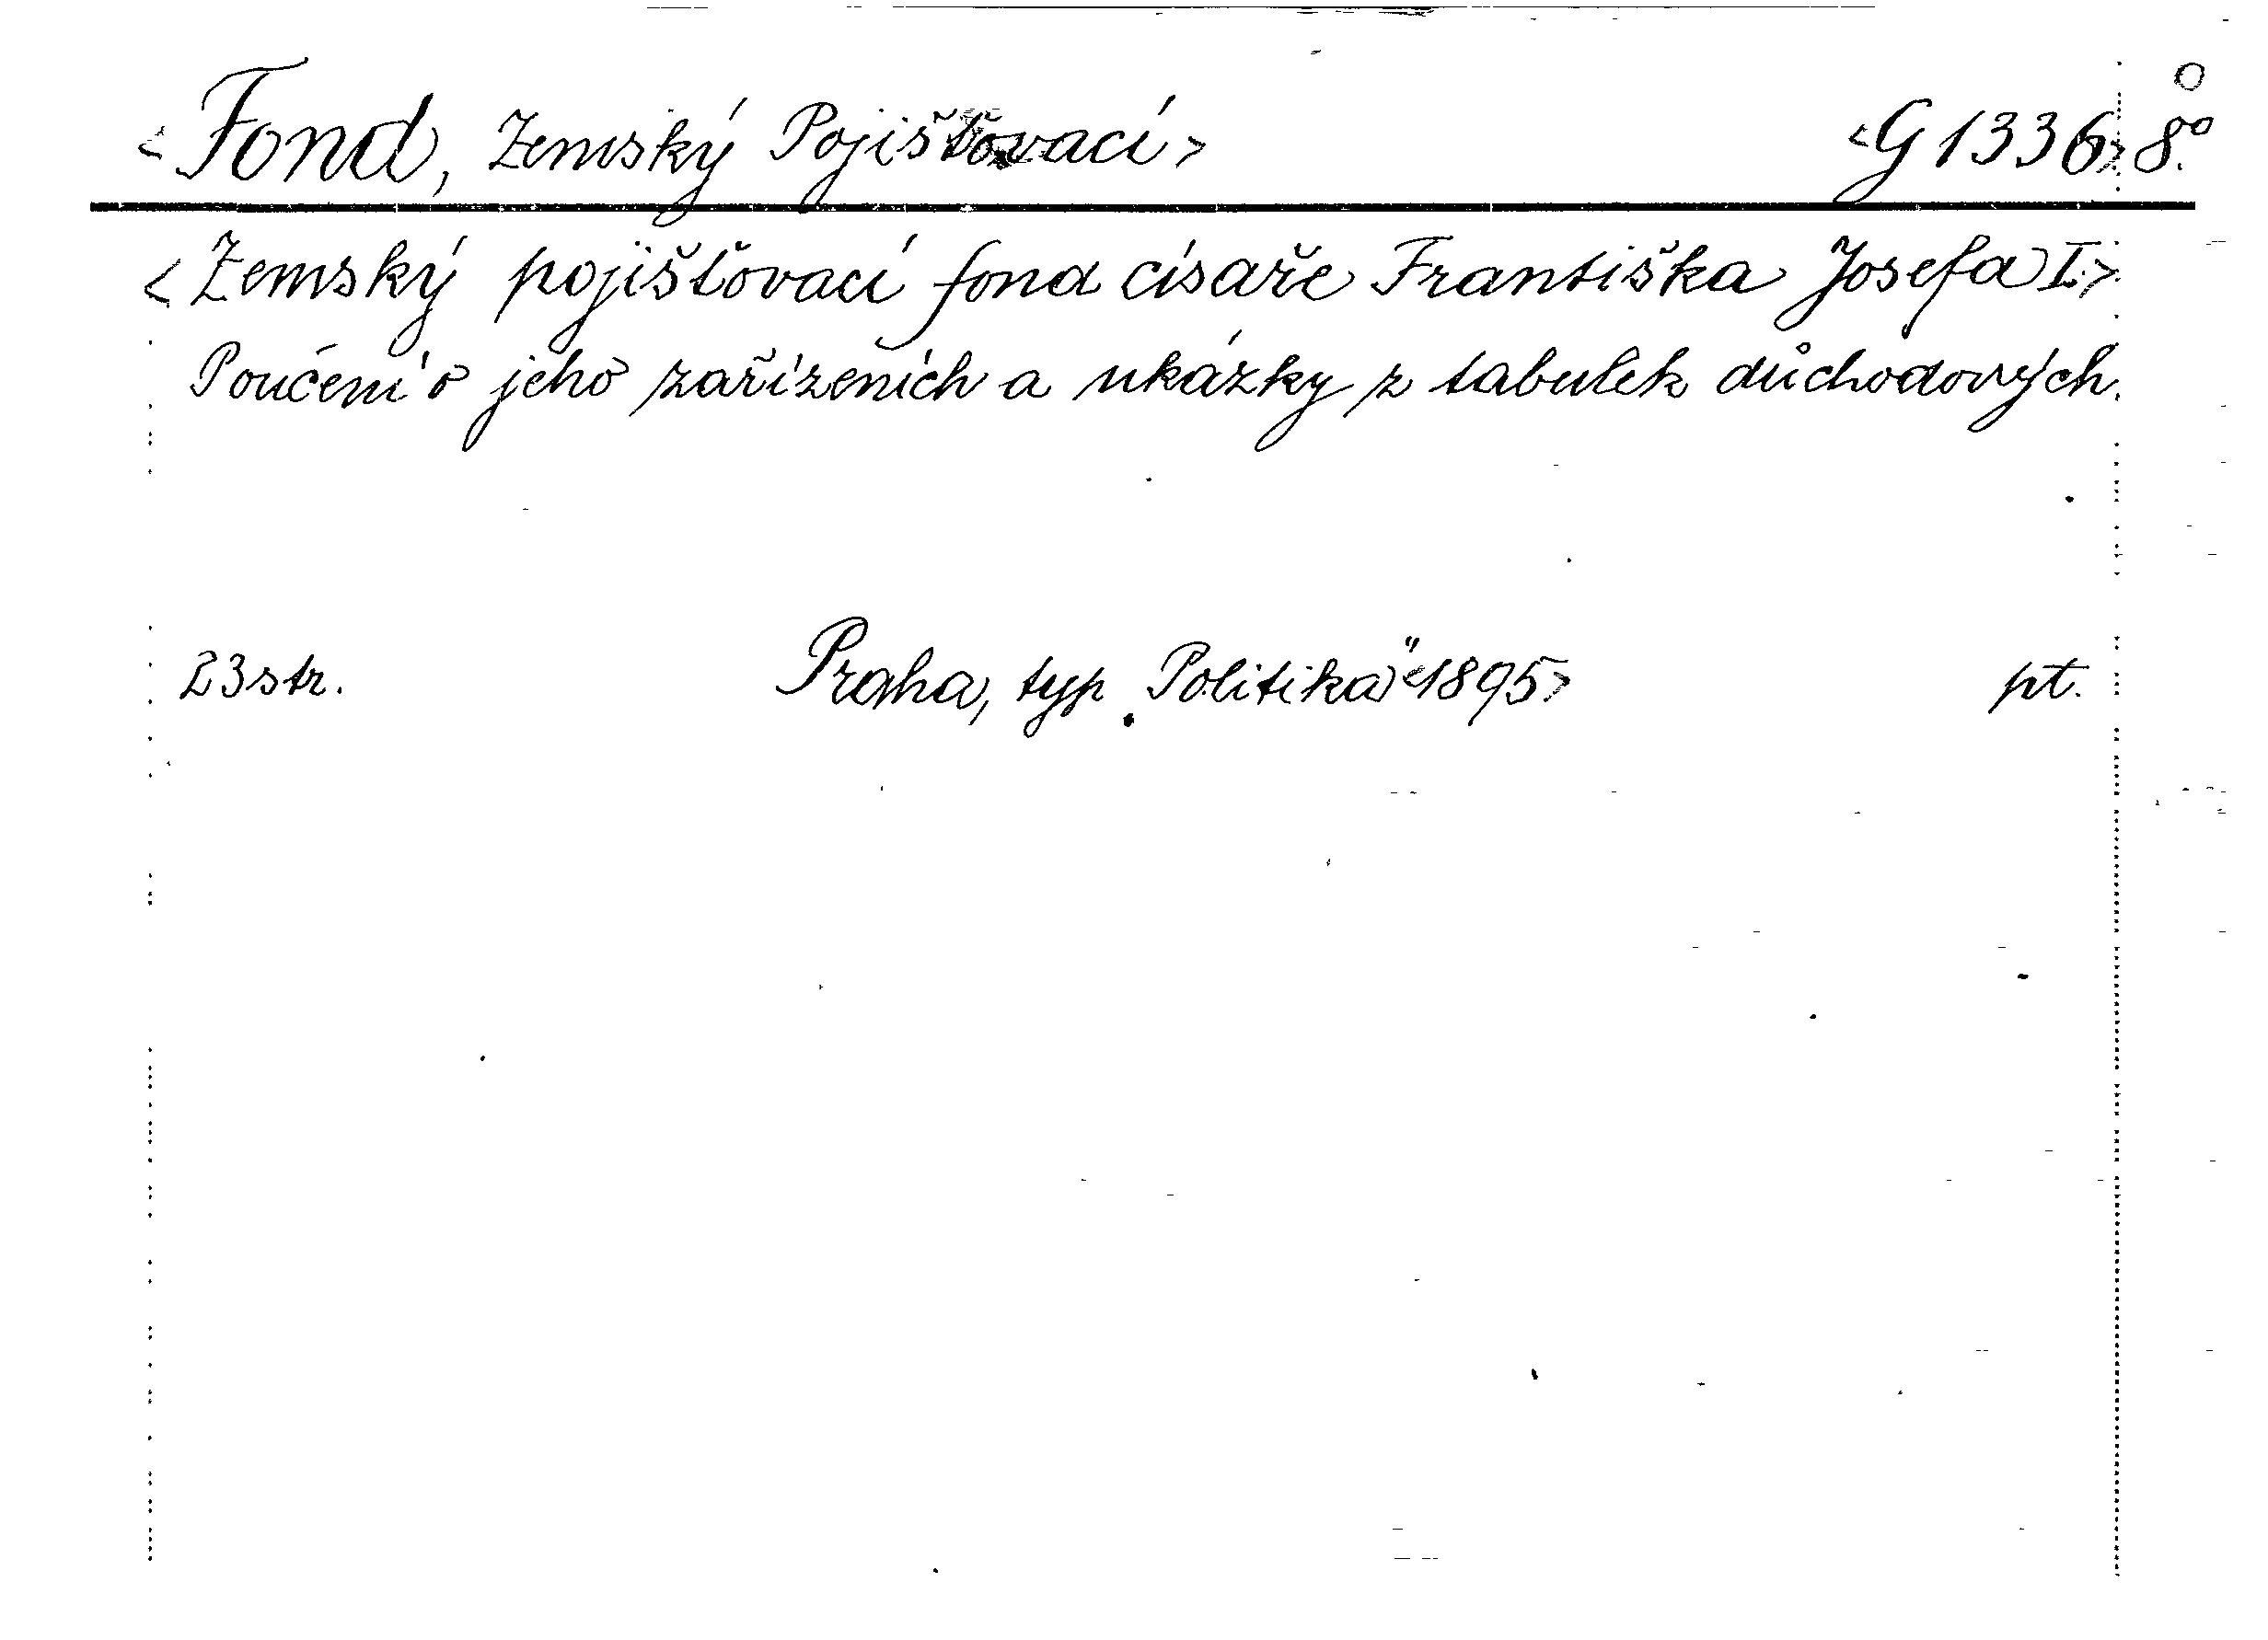 <Fond, Zemský Pojišťovací> <G 1336> 8.º
<Zemský pojišťovací fond císaře Františka Josefa I.>
Poučení o jeho zařízeních a ukázky z tabulek důchodových.
23 str. Praha, typ. „Politika" <1895> pt.